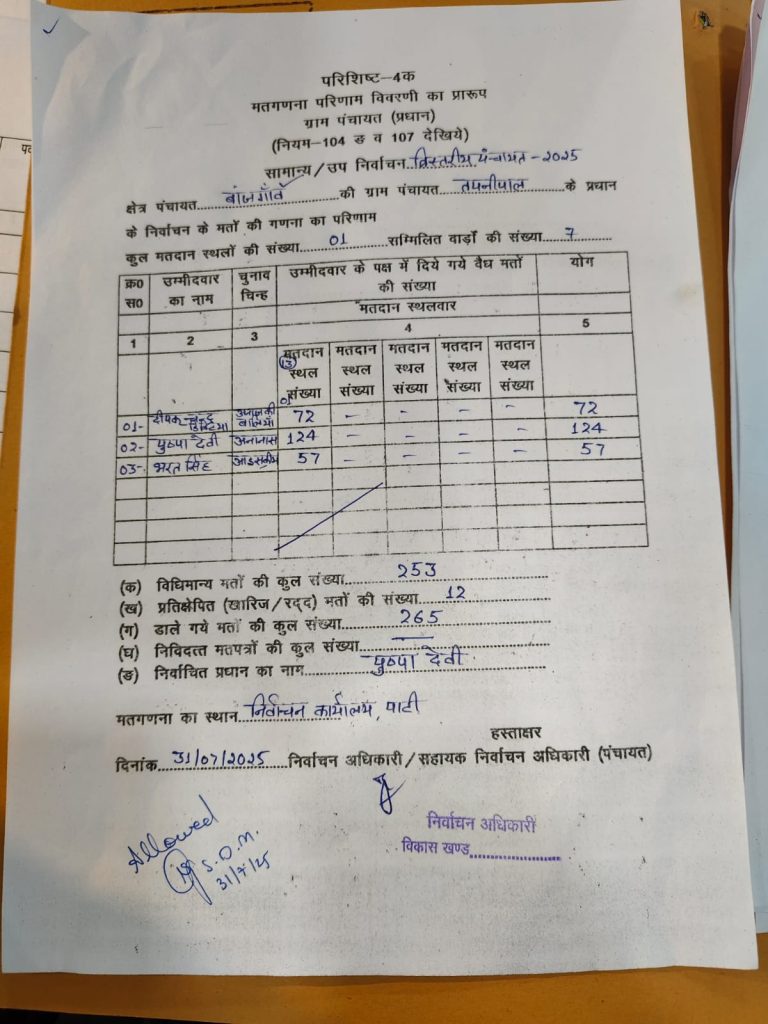 परिशिष्ट–4क
मतगणना परिणाम विवरणी का प्रारूप
ग्राम पंचायत (प्रधान)
(नियम–104 ङ व 107 देखिये)
सामान्य/उप निर्वाचन त्रिस्तरीय पंचायत - 2025
क्षेत्र पंचायत बांजगाँव की ग्राम पंचायत तपनीपाल के प्रधान
के निर्वाचन के मतों की गणना का परिणाम
कुल मतदान स्थलों की संख्या 01 सम्मिलित वार्डों की संख्या 7
क्र0 स0 उम्मीदवार का नाम चुनाव चिन्ह उम्मीदवार के पक्ष में दिये गये वैध मतों की संख्या योग
मतदान स्थलवार
1 2 3 4 5
मतदान स्थल संख्या मतदान स्थल संख्या मतदान स्थल संख्या मतदान स्थल संख्या मतदान स्थल संख्या
13
01
01- दीपक चन्द्र बालियाँ 72 - - - - 72
02- पुष्पा देवी अनानास 124 - - - - 124
03- भरत सिंह आइसक्रीम 57 - - - - 57
(क) विधिमान्य मतों की कुल संख्या 253
(ख) प्रतिक्षेपित (खारिज/रद्द) मतों की संख्या 12
(ग) डाले गये मतों की कुल संख्या 265
(घ) निविदत्त मतपत्रों की कुल संख्या —
(ङ) निर्वाचित प्रधान का नाम पुष्पा देवी
मतगणना का स्थान निर्वाचन कार्यालय, पाटी
हस्ताक्षर
दिनांक 31/07/2025 निर्वाचन अधिकारी/सहायक निर्वाचन अधिकारी (पंचायत)
निर्वाचन अधिकारी
विकास खण्ड
Allowed
S.D.M.
31/7/25